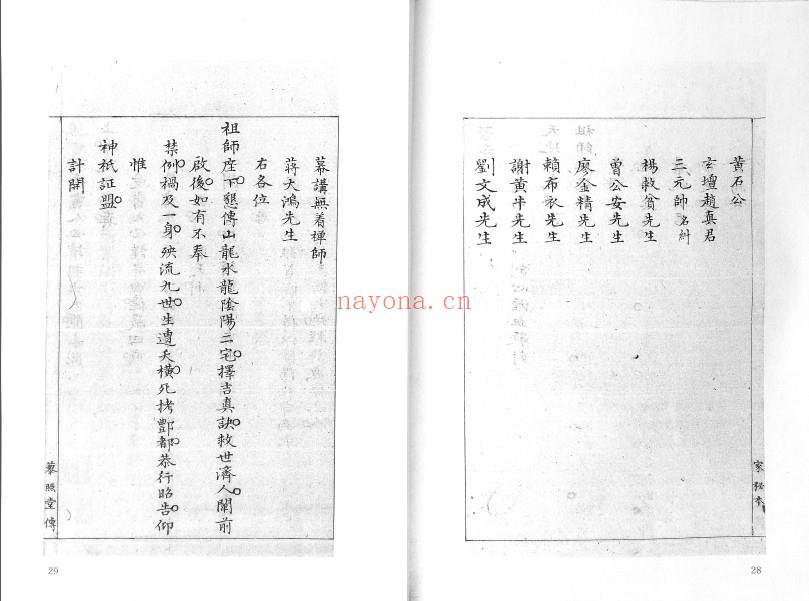 黃石公
玄壇趙真君
三元帥名糾
楊救貧先生
曾公安先生
廖金精先生
賴布衣先生
謝黃牛先生
劉文成先生
家秘本
28
幕講無着禪師
蔣大鴻先生
右各位
祖師座下。懇傳山龍水龍陰陽二宅。擇吉真訣。救世濟人。闡前
啟後。如有不奉
禁例。禍及一身。殃流九世。生遭夭橫。死拷酆都。恭行昭告。仰
惟
神祇証盟。
計開
藜照堂傳
29
nayona.cn